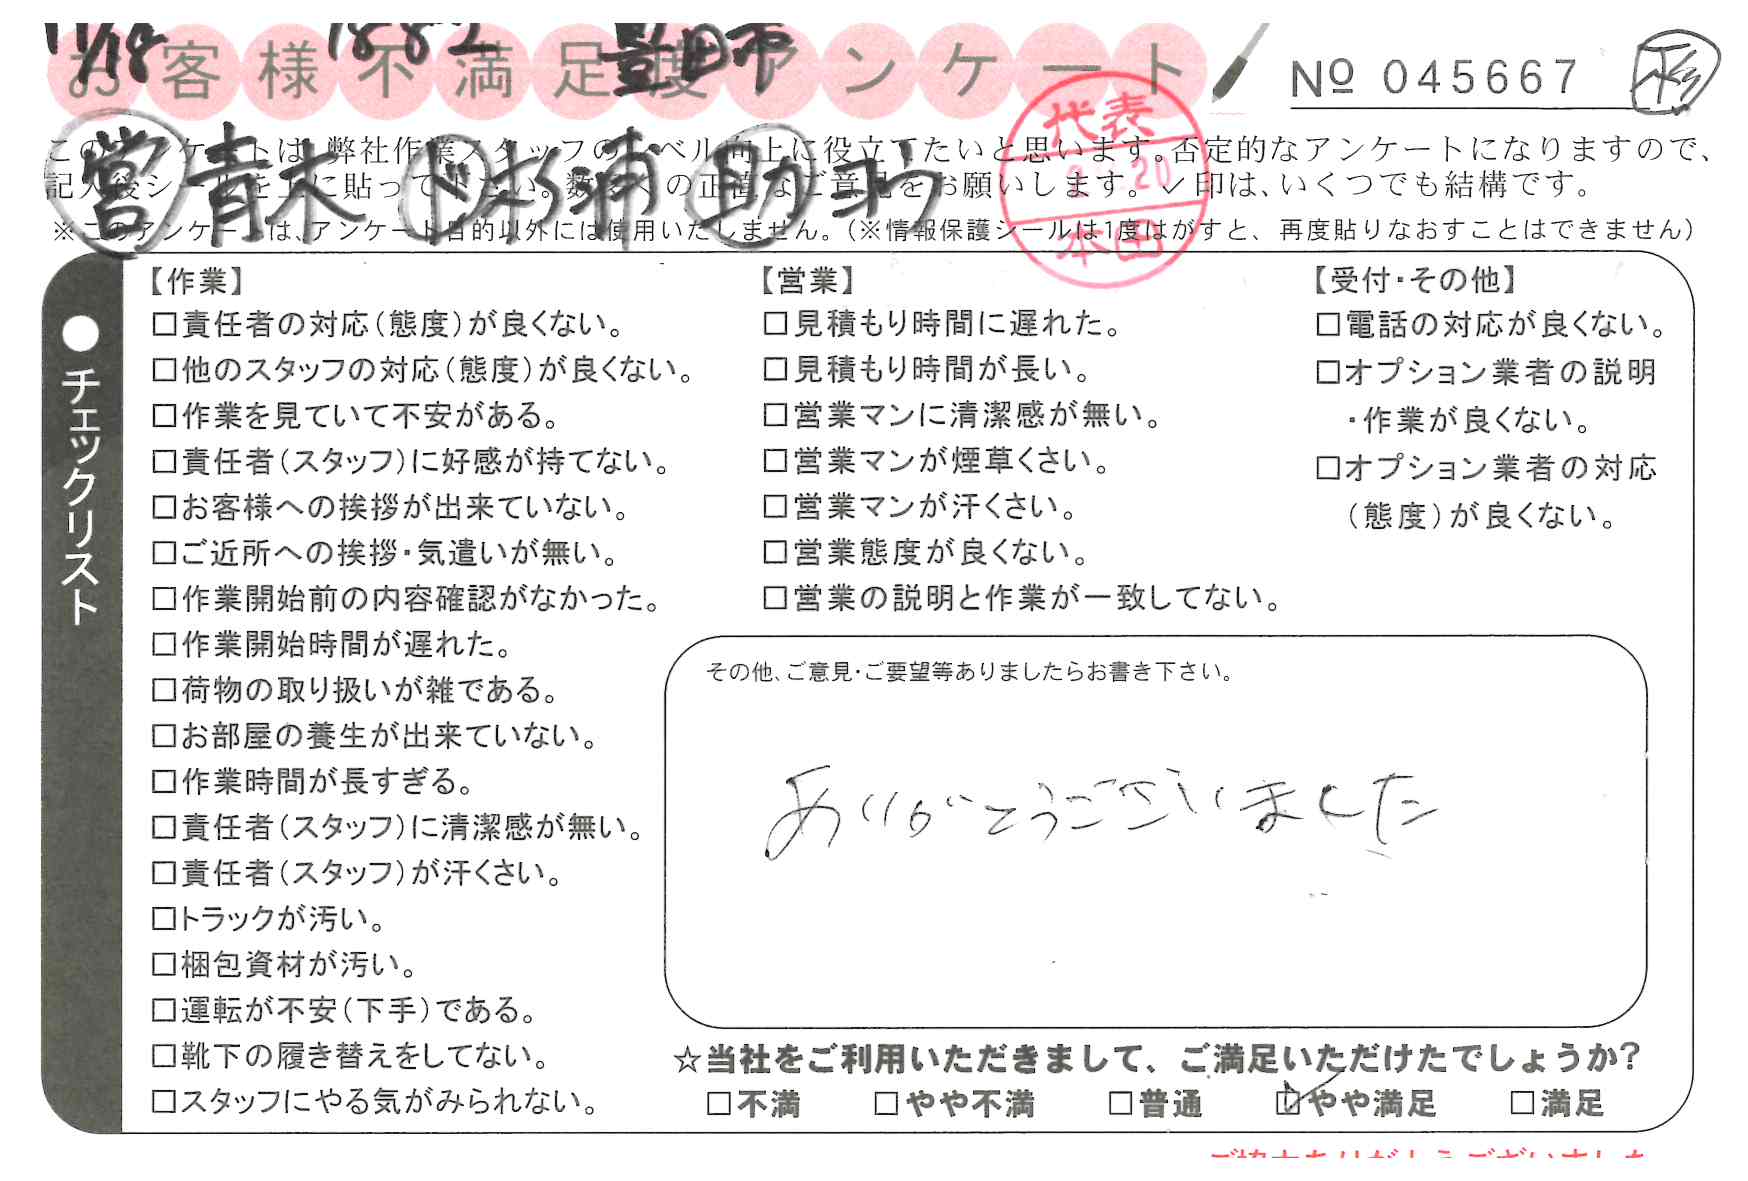 11/18 1882 豊田市
お客様不満足度アンケート
№ 045667
このアンケートは、弊社作業スタッフのレベル向上に役立てたいと思います。否定的なアンケートになりますので、
記入後シールを上に貼って下さい。数多くの正直なご意見をお願いします。✓印は、いくつでも結構です。
※このアンケートは、アンケート目的以外には使用いたしません。(※情報保護シールは1度はがすと、再度貼りなおすことはできません)
営 青木 杉浦 助
代表
20
本田
●チェックリスト
【作業】
□責任者の対応(態度)が良くない。
□他のスタッフの対応(態度)が良くない。
□作業を見ていて不安がある。
□責任者(スタッフ)に好感が持てない。
□お客様への挨拶が出来ていない。
□ご近所への挨拶・気遣いが無い。
□作業開始前の内容確認がなかった。
□作業開始時間が遅れた。
□荷物の取り扱いが雑である。
□お部屋の養生が出来ていない。
□作業時間が長すぎる。
□責任者(スタッフ)に清潔感が無い。
□責任者(スタッフ)が汗くさい。
□トラックが汚い。
□梱包資材が汚い。
□運転が不安(下手)である。
□靴下の履き替えをしてない。
□スタッフにやる気がみられない。
【営業】
□見積もり時間に遅れた。
□見積もり時間が長い。
□営業マンに清潔感が無い。
□営業マンが煙草くさい。
□営業マンが汗くさい。
□営業態度が良くない。
□営業の説明と作業が一致してない。
【受付・その他】
□電話の対応が良くない。
□オプション業者の説明
・作業が良くない。
□オプション業者の対応
(態度)が良くない。
その他、ご意見・ご要望等ありましたらお書き下さい。
ありがとうございました
☆当社をご利用いただきまして、ご満足いただけたでしょうか?
□不満 □やや不満 □普通 ☑やや満足 □満足
ご協力ありがとうございました